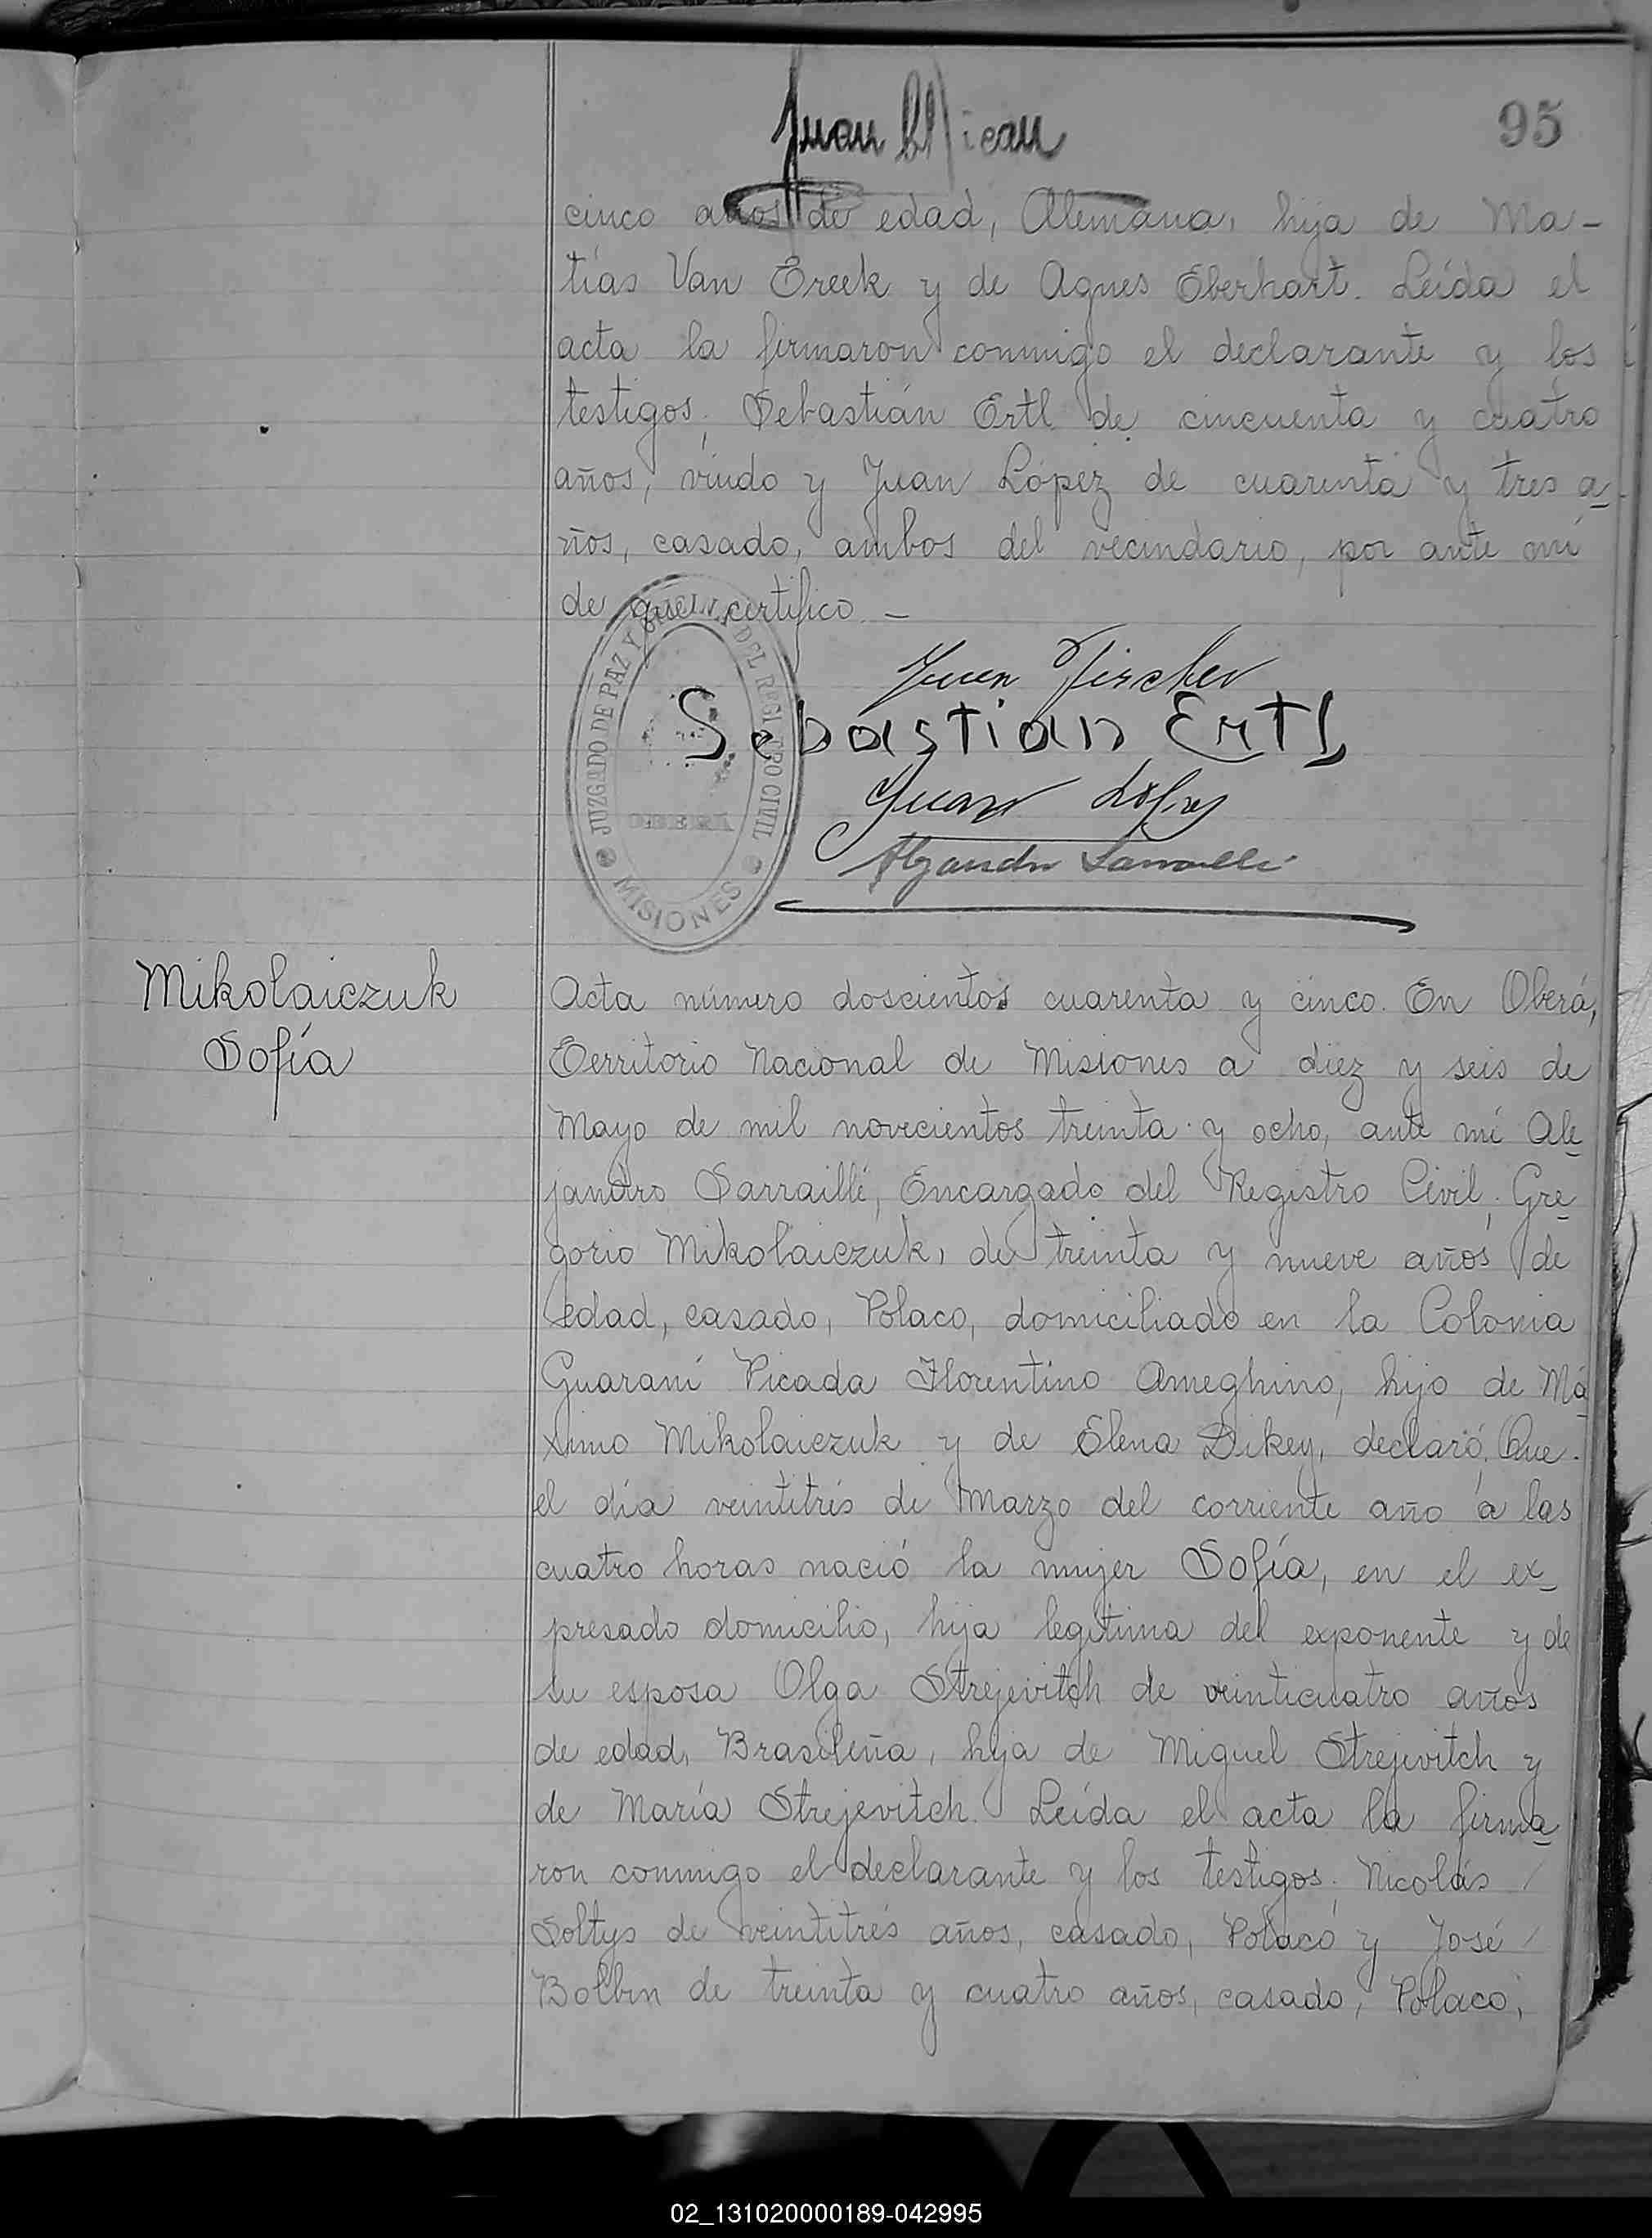 95
Juan
cinco años de edad, Alemana, hija de Ma-
tías Van Ereek y de Agnes Eberhart. Leída el
acta la firmaron conmigo el declarante y los
testigos; Sebastián Ertl de cincuenta y cuatro
años, viudo y Juan López de cuarenta y tres a-
ños, casado, ambos del vecindario, por ante mí
de que certifico. -
JUZGADO DE PAZ Y OFICINA DEL REGISTRO CIVIL
OBERA
MISIONES
Juan
Sebastian Ertl
Juan López
Alejandro Sarraillé
Mikolaiczuk
Sofía
Acta número doscientos cuarenta y cinco. En Oberá,
Territorio Nacional de Misiones a diez y seis de
Mayo de mil novecientos treinta y ocho, ante mí Ale-
jandro Sarraillé, Encargado del Registro Civil; Gre-
gorio Mikolaiczuk, de treinta y nueve años de
edad, casado, Polaco, domiciliado en la Colonia
Guaraní Picada Florentino Ameghino, hijo de Má-
ximo Mikolaiczuk y de Elena Dikey, declaró: Que
el día veintitrés de Marzo del corriente año a las
cuatro horas nació la mujer Sofía, en el ex-
presado domicilio, hija legítima del exponente y de
su esposa Olga Strejevitch de veinticuatro años
de edad, Brasileña, hija de Miguel Strejevitch y
de María Strejevitch. Leída el acta la firma-
ron conmigo el declarante y los testigos; Nicolás
Soltys de veintitrés años, casado, Polaco y José
Bolbin de treinta y cuatro años, casado, Polaco,
02_131020000189-042995